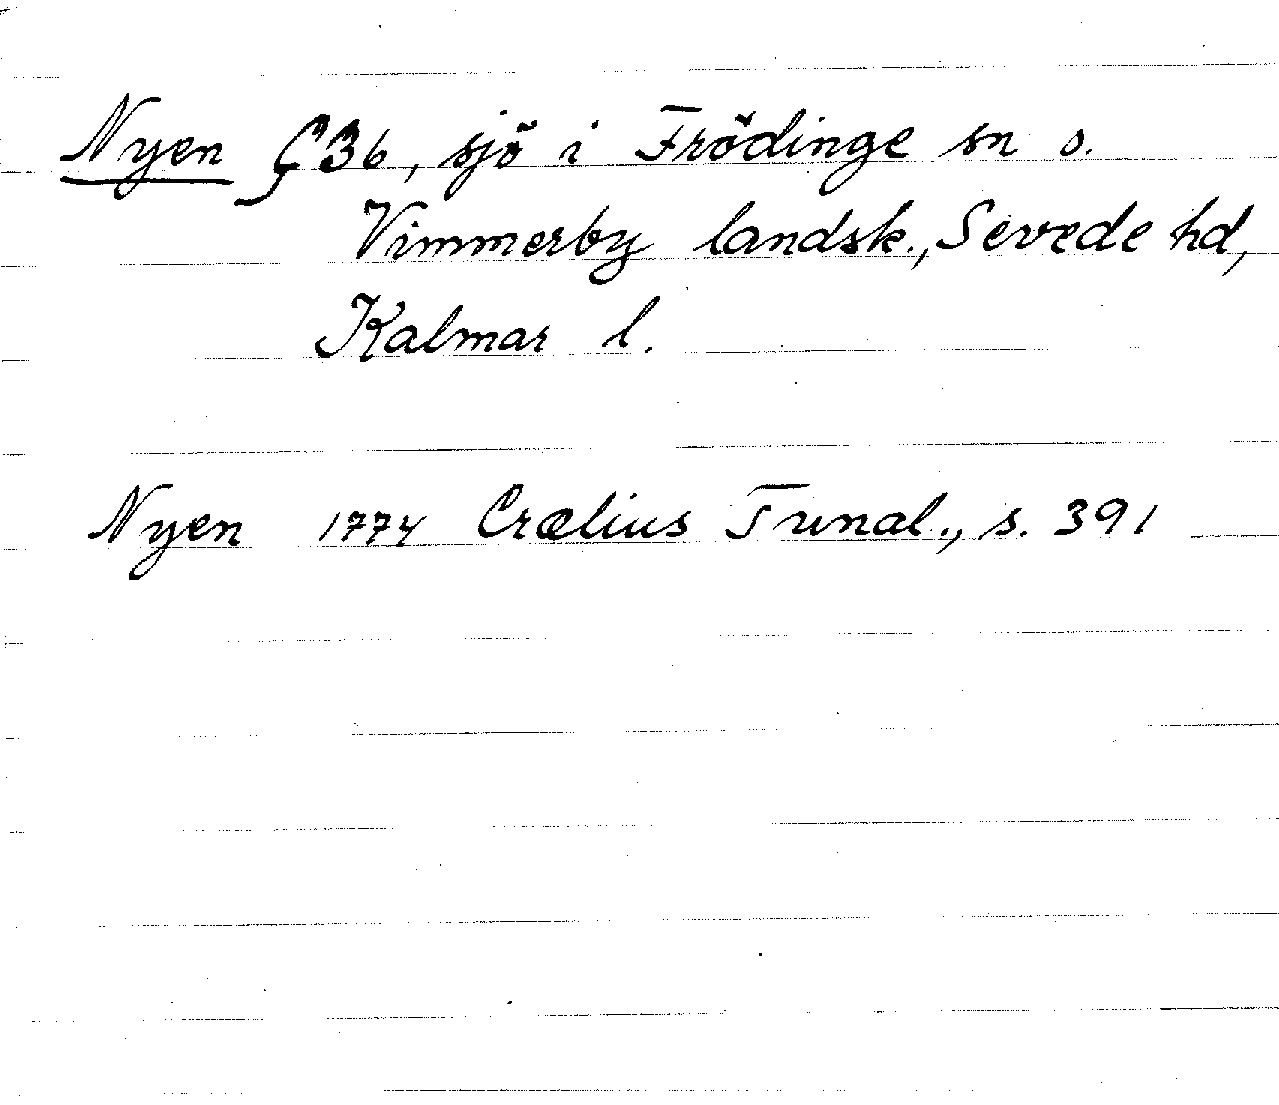 Nyen §36, sjö i Frödinge sn o.
Vimmerby landsk., Sevede hd,
Kalmar l.
Nyen 1774 Crælius Tunal., s. 391